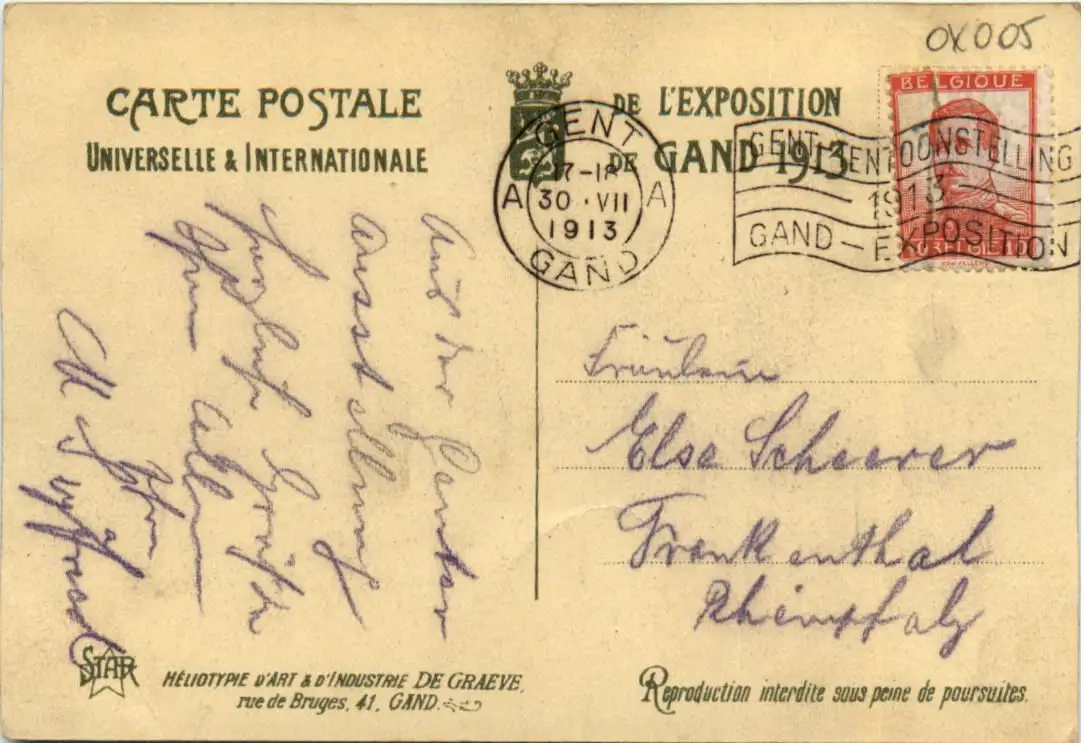 OX005
CARTE POSTALE
UNIVERSELLE & INTERNATIONALE
DE L'EXPOSITION
DE GAND 1913
BELGIQUE
BELGIË
GENT
A 17-18 A
30 · VII
1913
GAND
GENT-TENTOONSTELLING
-1913-
GAND-EXPOSITION
Aus der Genter
Ausstellung
herzliche Grüße
Ihnen allen
Fräulein
Else Scheerer
Frankenthal
Rheinpfalz
STAR
HÉLIOTYPIE D'ART & D'INDUSTRIE DE GRAEVE,
rue de Bruges, 41, GAND.
Reproduction interdite sous peine de poursuites.